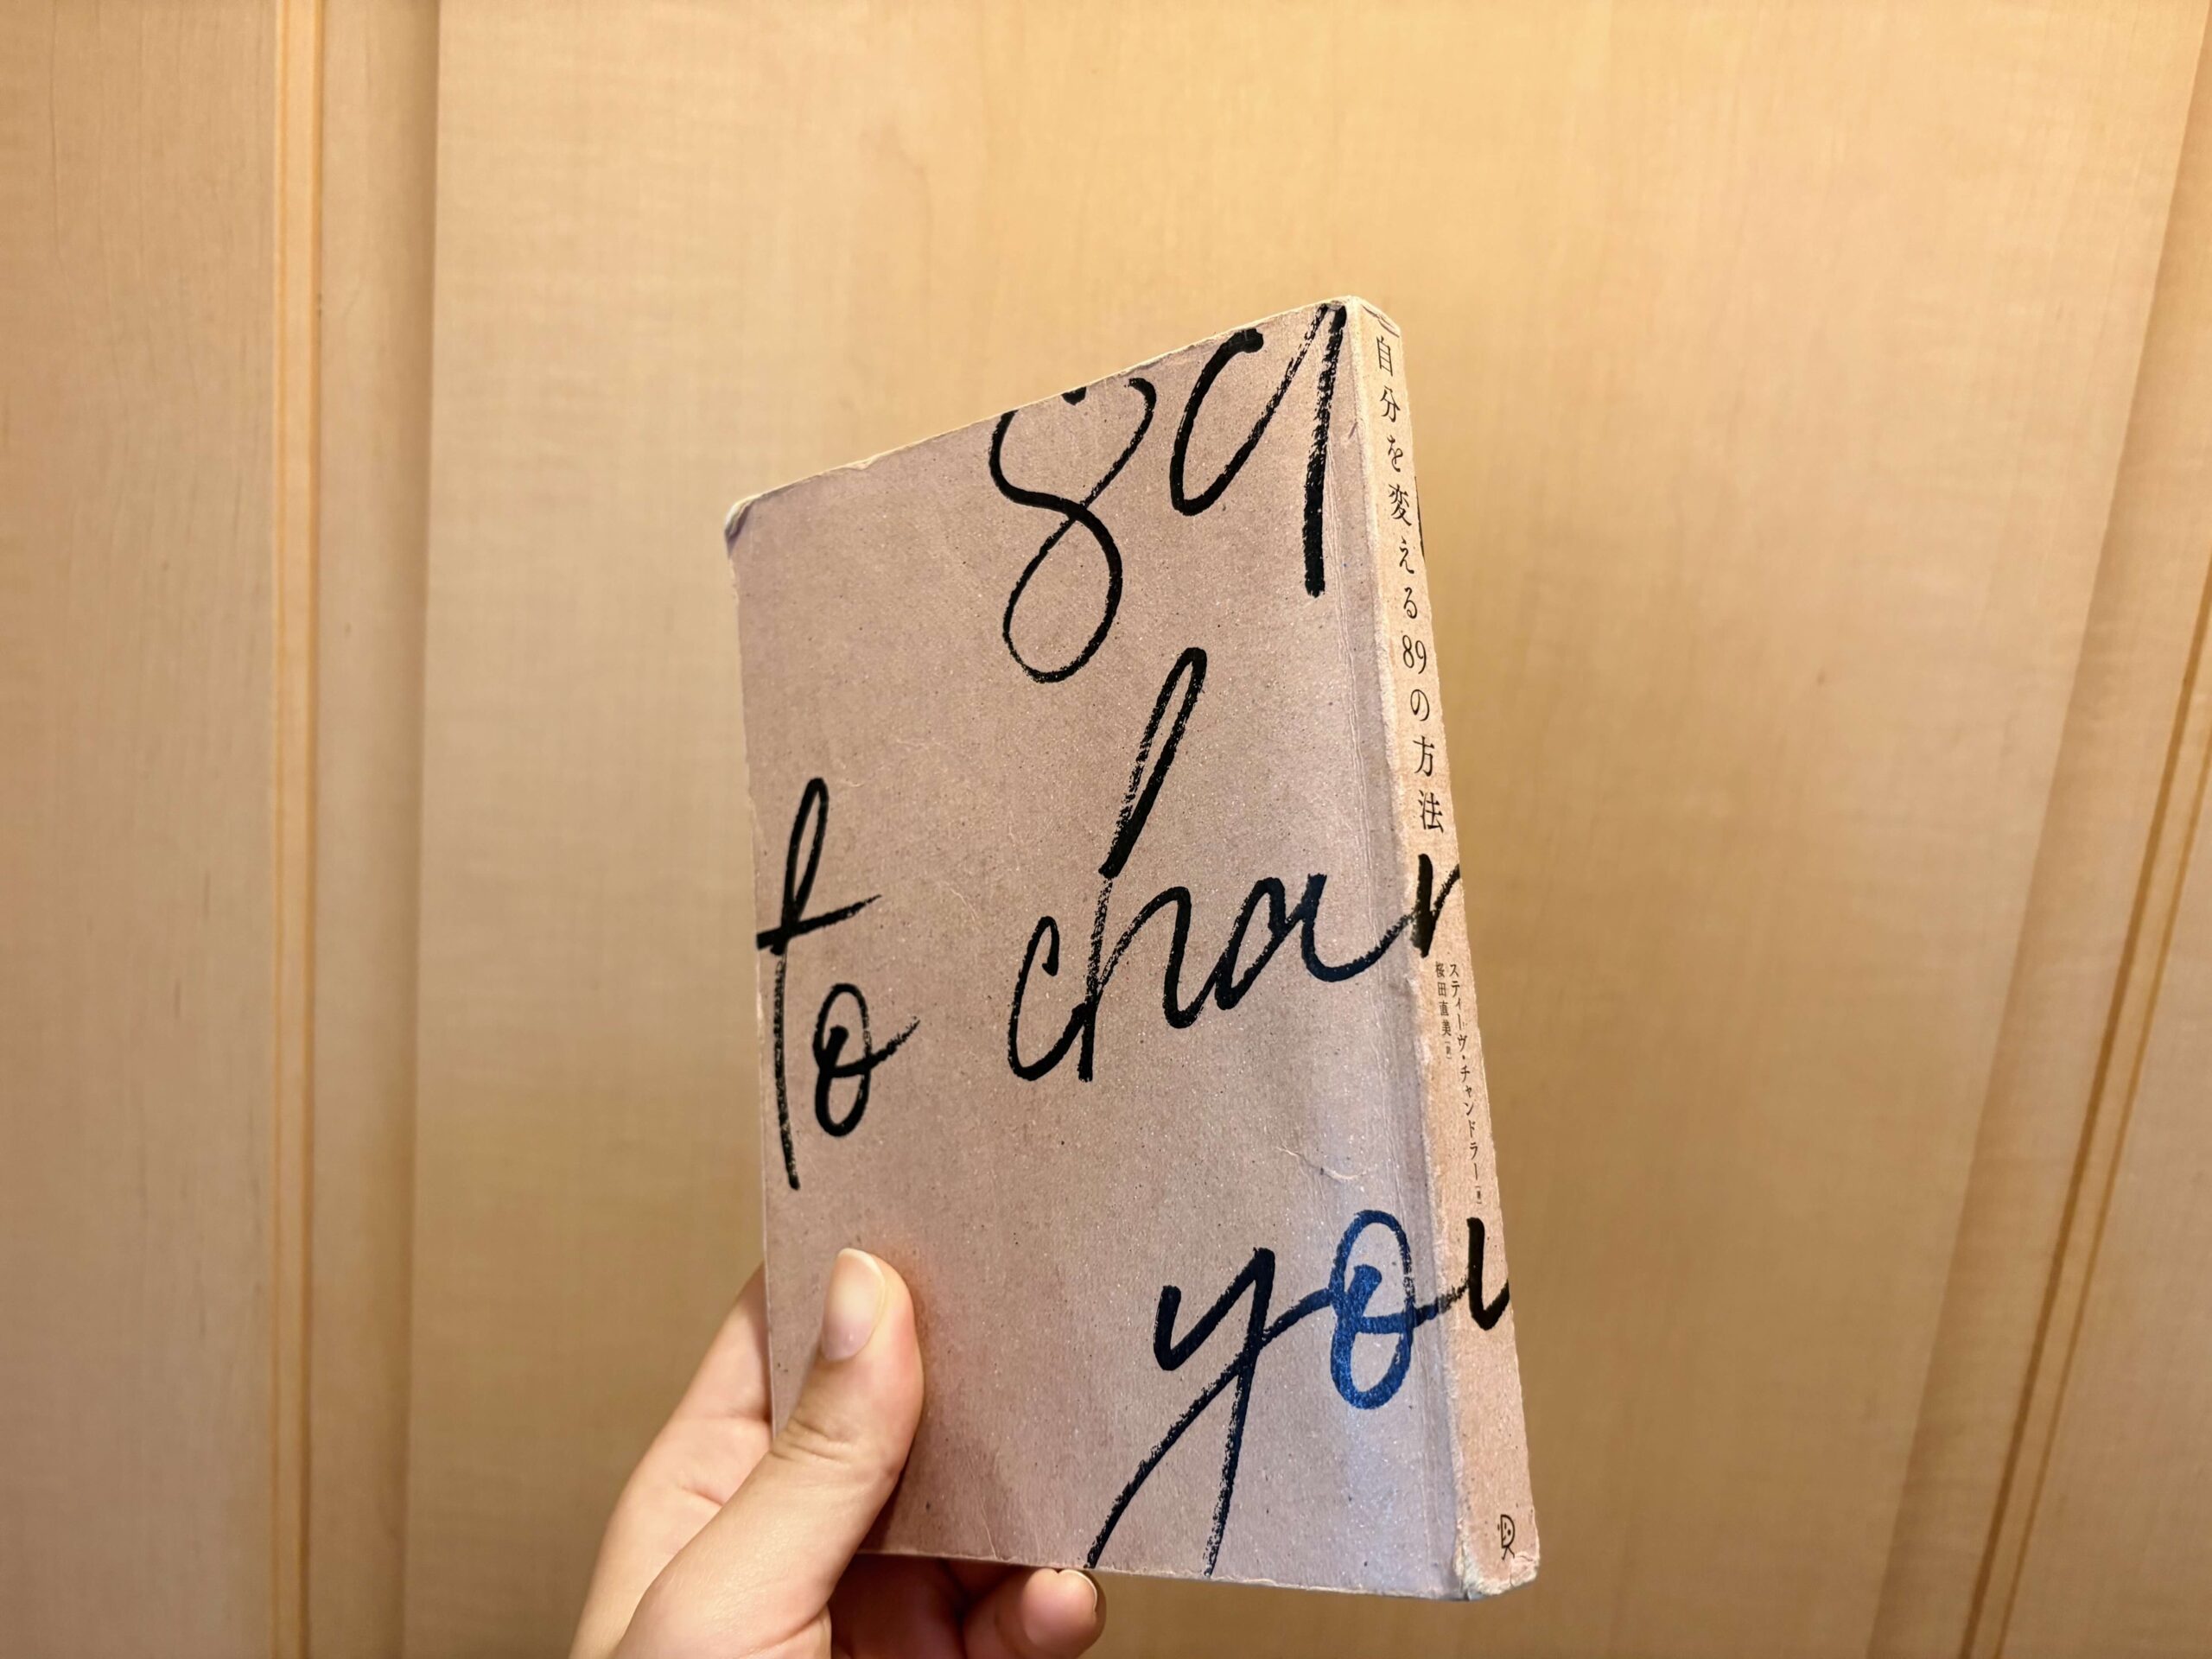 89
to cha
you
自分を変える89の方法
スティーヴ・チャンドラー［著］
桜田直美［訳］